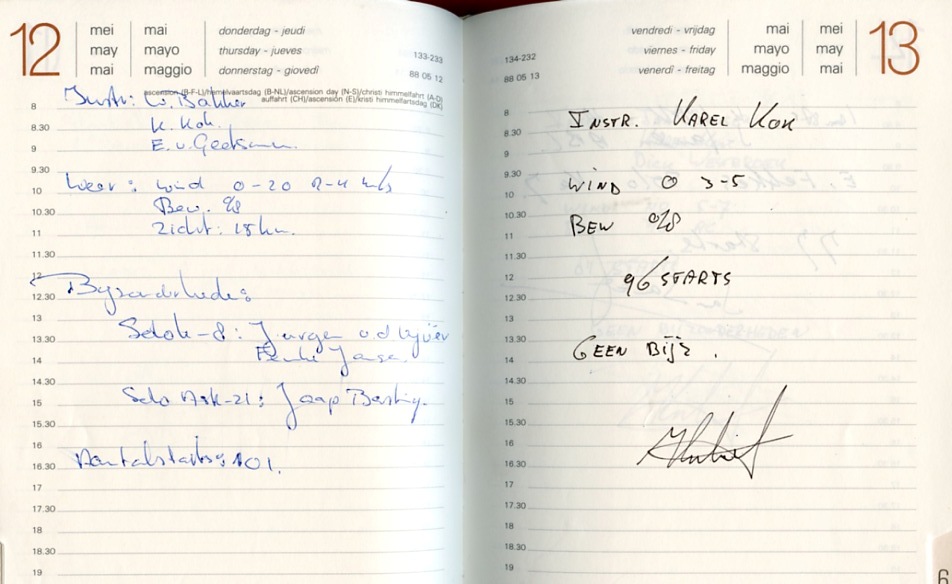 12
mei mai donderdag - jeudi
may mayo thursday - jueves
mai maggio donnerstag - giovedi
133-233
88 05 12
ascension (B-F-L)/hemelvaartsdag (B-NL)/ascension day (N-S)/christi himmelfahrt (A-D)
auffahrt (CH)/ascensión (E)/kristi himmelfartsdag (DK)
8 Instr: W. Bakker
8.30 K. Kok.
9 E. v.
9.30
10 Weer: wind 0-20 2-4 m/s
10.30 Bew. 0/8
11 Zicht: 15 km.
11.30
12
12.30 Byzonderheden:
13
13.30 Solo K-8: Jurgen v.d
14
14.30
15 Solo Ask-21: Jaap
15.30
16
16.30 Aantal starts: 101.
17
17.30
18
18.30
19
vendredi - vrijdag mai mei 13
viernes - friday mayo may
venerdì - freitag maggio mai
134-232
88 05 13
8 INSTR. KAREL KOK
8.30
9
9.30
10 WIND O 3-5
10.30
11 BEW 0/8
11.30
12 96 STARTS
12.30
13
13.30
14 GEEN BIJZ.
14.30
15
15.30
16
16.30
17
17.30
18
18.30
19